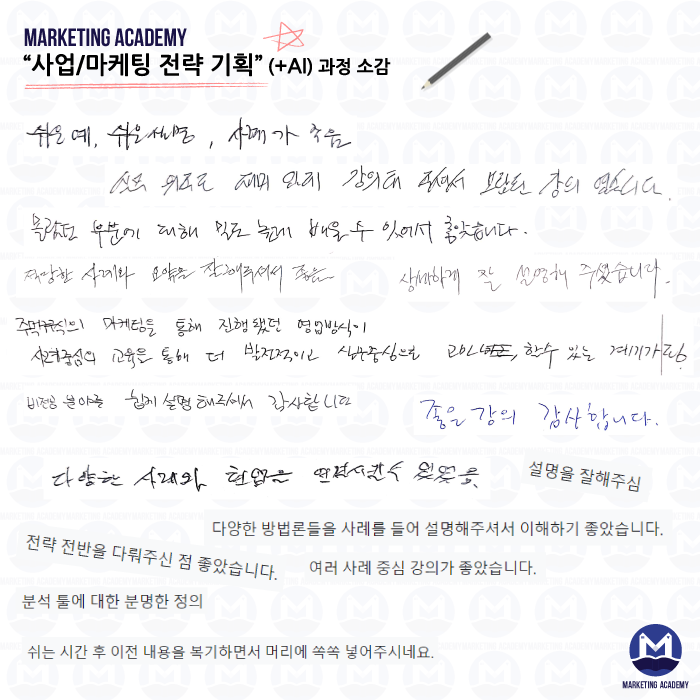 MARKETING ACADEMY
“사업/마케팅 전략 기획” (+AI) 과정 소감
쉬운 예, 쉬운 설명, 사례가 좋음
실무 위주로 재미 있게 강의해 주셔서 보람된 강의 였습니다.
몰랐던 부분에 대해 밀도 높게 배울 수 있어서 좋았습니다.
적당한 사례와 요약을 잘해주셔서 좋음
상세하게 잘 설명해 주셨습니다.
주먹구식의 마케팅을 통해 진행 됐던 영업방식이
사례중심의 교육을 통해 더 발전적이고 실무중심으로 고민 할수 있는 계기가 됨.
비전공 분야를 쉽게 설명해주셔서 감사합니다
좋은 강의 감사합니다.
다양한 사례와 현업을 연결시킬수 있었음.
설명을 잘해주심
다양한 방법론들을 사례를 들어 설명해주셔서 이해하기 좋았습니다.
전략 전반을 다뤄주신 점 좋았습니다.
여러 사례 중심 강의가 좋았습니다.
분석 툴에 대한 분명한 정의
쉬는 시간 후 이전 내용을 복기하면서 머리에 쏙쏙 넣어주시네요.
MARKETING ACADEMY